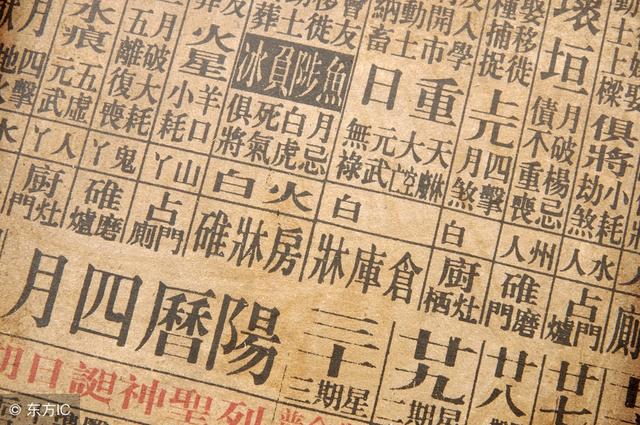 俱將
劫煞
小耗
水人
占門
爐
廿七
壞垣
月破
楊忌
債不
重喪
州人
碓磨
門
廿八
娶移徙
種捕捉
上元
四擊
月煞
白
廚灶
栖
廿九
星期二
人學
開市
動土
納畜
重日
元武
無祿
白
倉庫牀
三十
星期三
魚陟負冰
月忌
白虎
死氣
俱將
火白
房牀碓
火星
羊口
小耗
山丫
占門
廁
月破大耗
五離復喪
鬼丫
碓磨
爐
水痕
五虛
元武
人丫
廚灶
門
四擊
陽曆四月
列聖神誕日期
© 东方IC